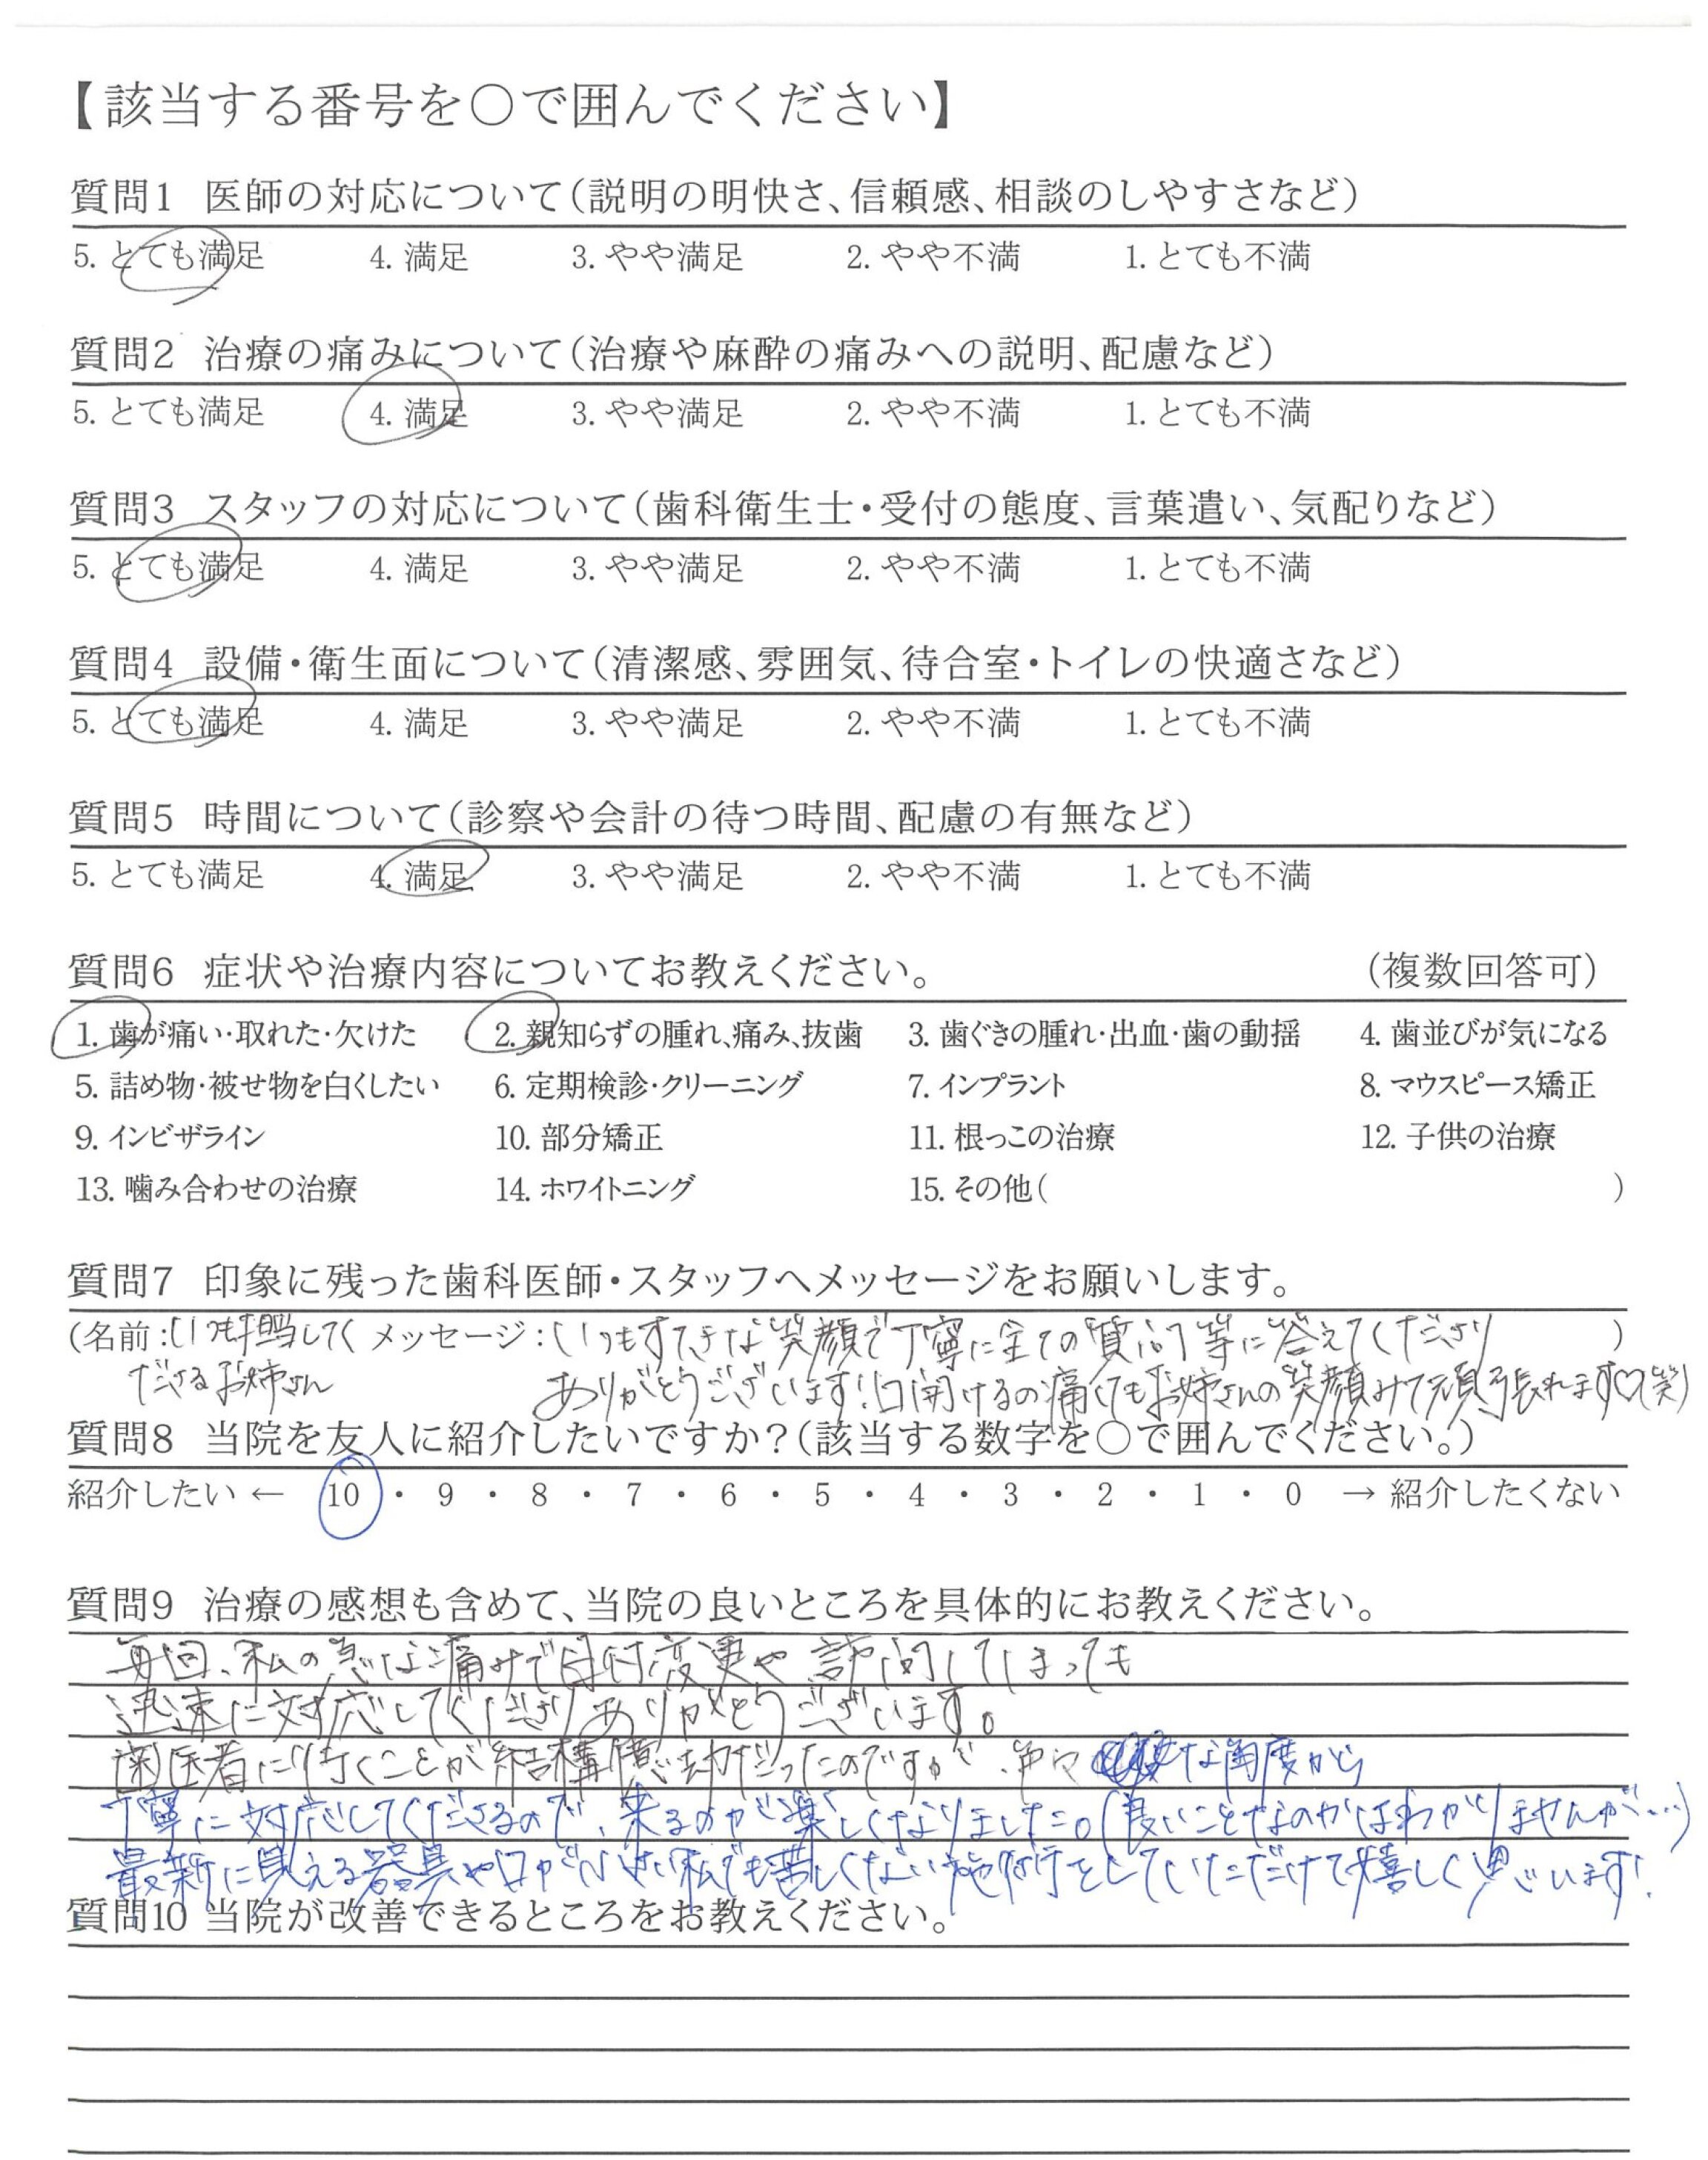 【該当する番号を○で囲んでください】
質問1 医師の対応について（説明の明快さ、信頼感、相談のしやすさなど）
5. とても満足 4. 満足 3. やや満足 2. やや不満 1. とても不満
質問2 治療の痛みについて（治療や麻酔の痛みへの説明、配慮など）
5. とても満足 4. 満足 3. やや満足 2. やや不満 1. とても不満
質問3 スタッフの対応について（歯科衛生士・受付の態度、言葉遣い、気配りなど）
5. とても満足 4. 満足 3. やや満足 2. やや不満 1. とても不満
質問4 設備・衛生面について（清潔感、雰囲気、待合室・トイレの快適さなど）
5. とても満足 4. 満足 3. やや満足 2. やや不満 1. とても不満
質問5 時間について（診察や会計の待つ時間、配慮の有無など）
5. とても満足 4. 満足 3. やや満足 2. やや不満 1. とても不満
質問6 症状や治療内容についてお教えください。 （複数回答可）
1. 歯が痛い・取れた・欠けた 2. 親知らずの腫れ、痛み、抜歯 3. 歯ぐきの腫れ・出血・歯の動揺 4. 歯並びが気になる
5. 詰め物・被せ物を白くしたい 6. 定期検診・クリーニング 7. インプラント 8. マウスピース矯正
9. インビザライン 10. 部分矯正 11. 根っこの治療 12. 子供の治療
13. 噛み合わせの治療 14. ホワイトニング 15. その他（ ）
質問7 印象に残った歯科医師・スタッフへメッセージをお願いします。
（名前：いつも担当してく メッセージ：いつもすてきな笑顔で丁寧に全ての質問等に答えてくださり ）
ださるお姉さん ありがとうございます！口開けるの痛くてもお姉さんの笑顔みて頑張れます♡（笑）
質問8 当院を友人に紹介したいですか？（該当する数字を○で囲んでください。）
紹介したい ← 10 ・ 9 ・ 8 ・ 7 ・ 6 ・ 5 ・ 4 ・ 3 ・ 2 ・ 1 ・ 0 → 紹介したくない
質問9 治療の感想も含めて、当院の良いところを具体的にお教えください。
毎回、私の急な痛みで日付変更や訪問してしまっても
迅速に対応してくださりありがとうございます。
歯医者に行くことが結構億劫だったのですが、 な角度から
丁寧に対応してくださるので、来るのが楽しくなりました。（良いことなのかはわかりませんが…）
最新に見える器具や口が小さい私でも苦しくない施術をしていただけて嬉しく思います！
質問10 当院が改善できるところをお教えください。